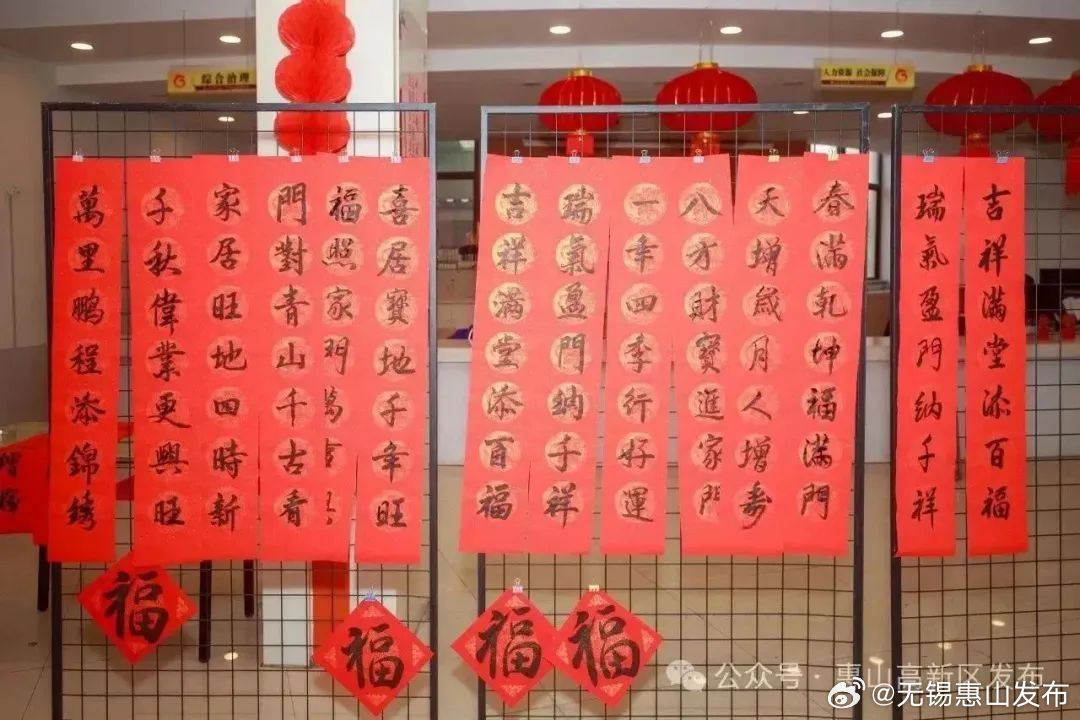 綜合治理
人力資源 社會保障
喜居寶地千年旺
福照家門萬
門對青山千古看
家居旺地四時新
千秋偉業更興旺
萬里鵬程添錦綉
春滿乾坤福滿門
天增歲月人增壽
八方財寶進家門
一年四季行好運
瑞氣盈門納千祥
吉祥滿堂添百福
吉祥滿堂添百福
瑞氣盈門納千祥
福
福
福
福
公众号·惠山高新区发布
@无锡惠山发布